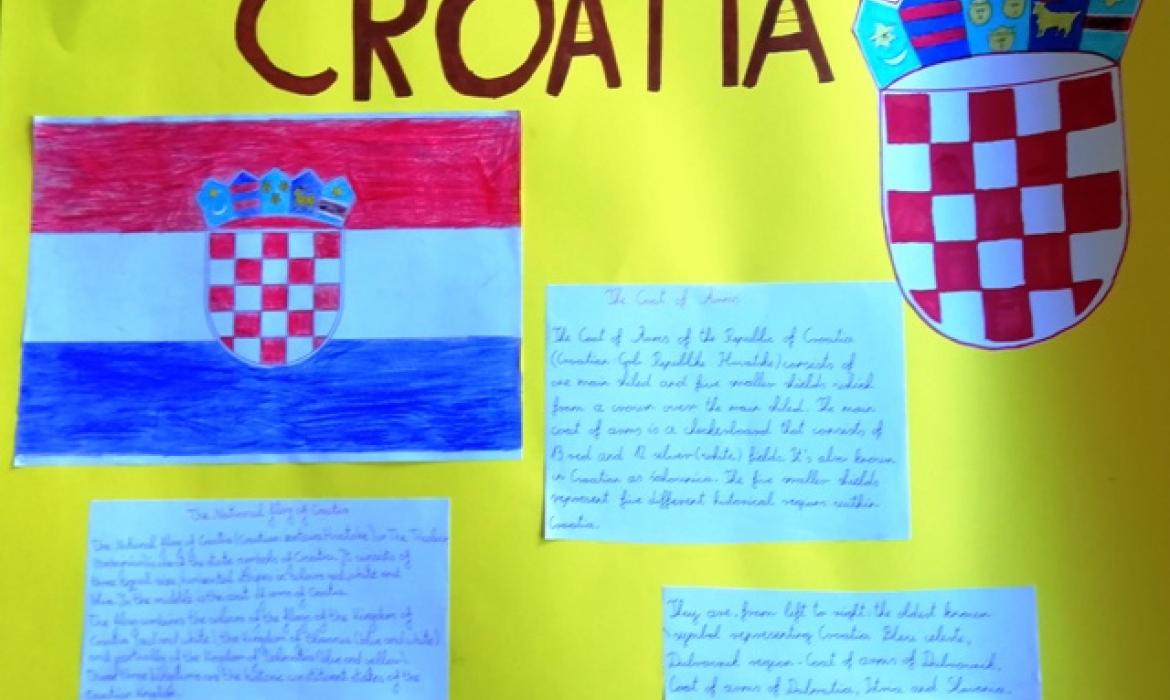 CROATIA
The Coat of Arms
The Coat of Arms of the Republic of Croatia
(Croatian Grb Republike Hrvatske) consists of
one main shiled and five smaller shields which
from a crown over the main shiled. The main
coat of arms is a checkerboard that consists of
13 red and 12 silver (white) fields. It's also known
in Croatian as šahovnica. The five smaller shields
represent five different historical regions within
Croatia.
The National flag of Croatia
The National flag of Croatia (Croatian: zastava Hrvatske) or The Tricolor
is one of the state symbols of Croatia. It consists of
three equal size, horizontal stripes in colours red, white and
blue. In the middle is the coat of arms of Croatia.
The flag combines the colours of the flags of the Kingdom of
Croatia (red and white), the Kingdom of Slavonia (blue and white)
and partially of the Kingdom of Dalmatia (blue and yellow).
Those three kingdoms are the historic constituent states of the
Croatian Kingdom.
They are, from left to right: the oldest known
symbol representing Croatia Bleu celeste,
Dubrovnik region - Coat of arms of Dubrovnik,
Coat of arms of Dalmatia, Istria and Slavonia.